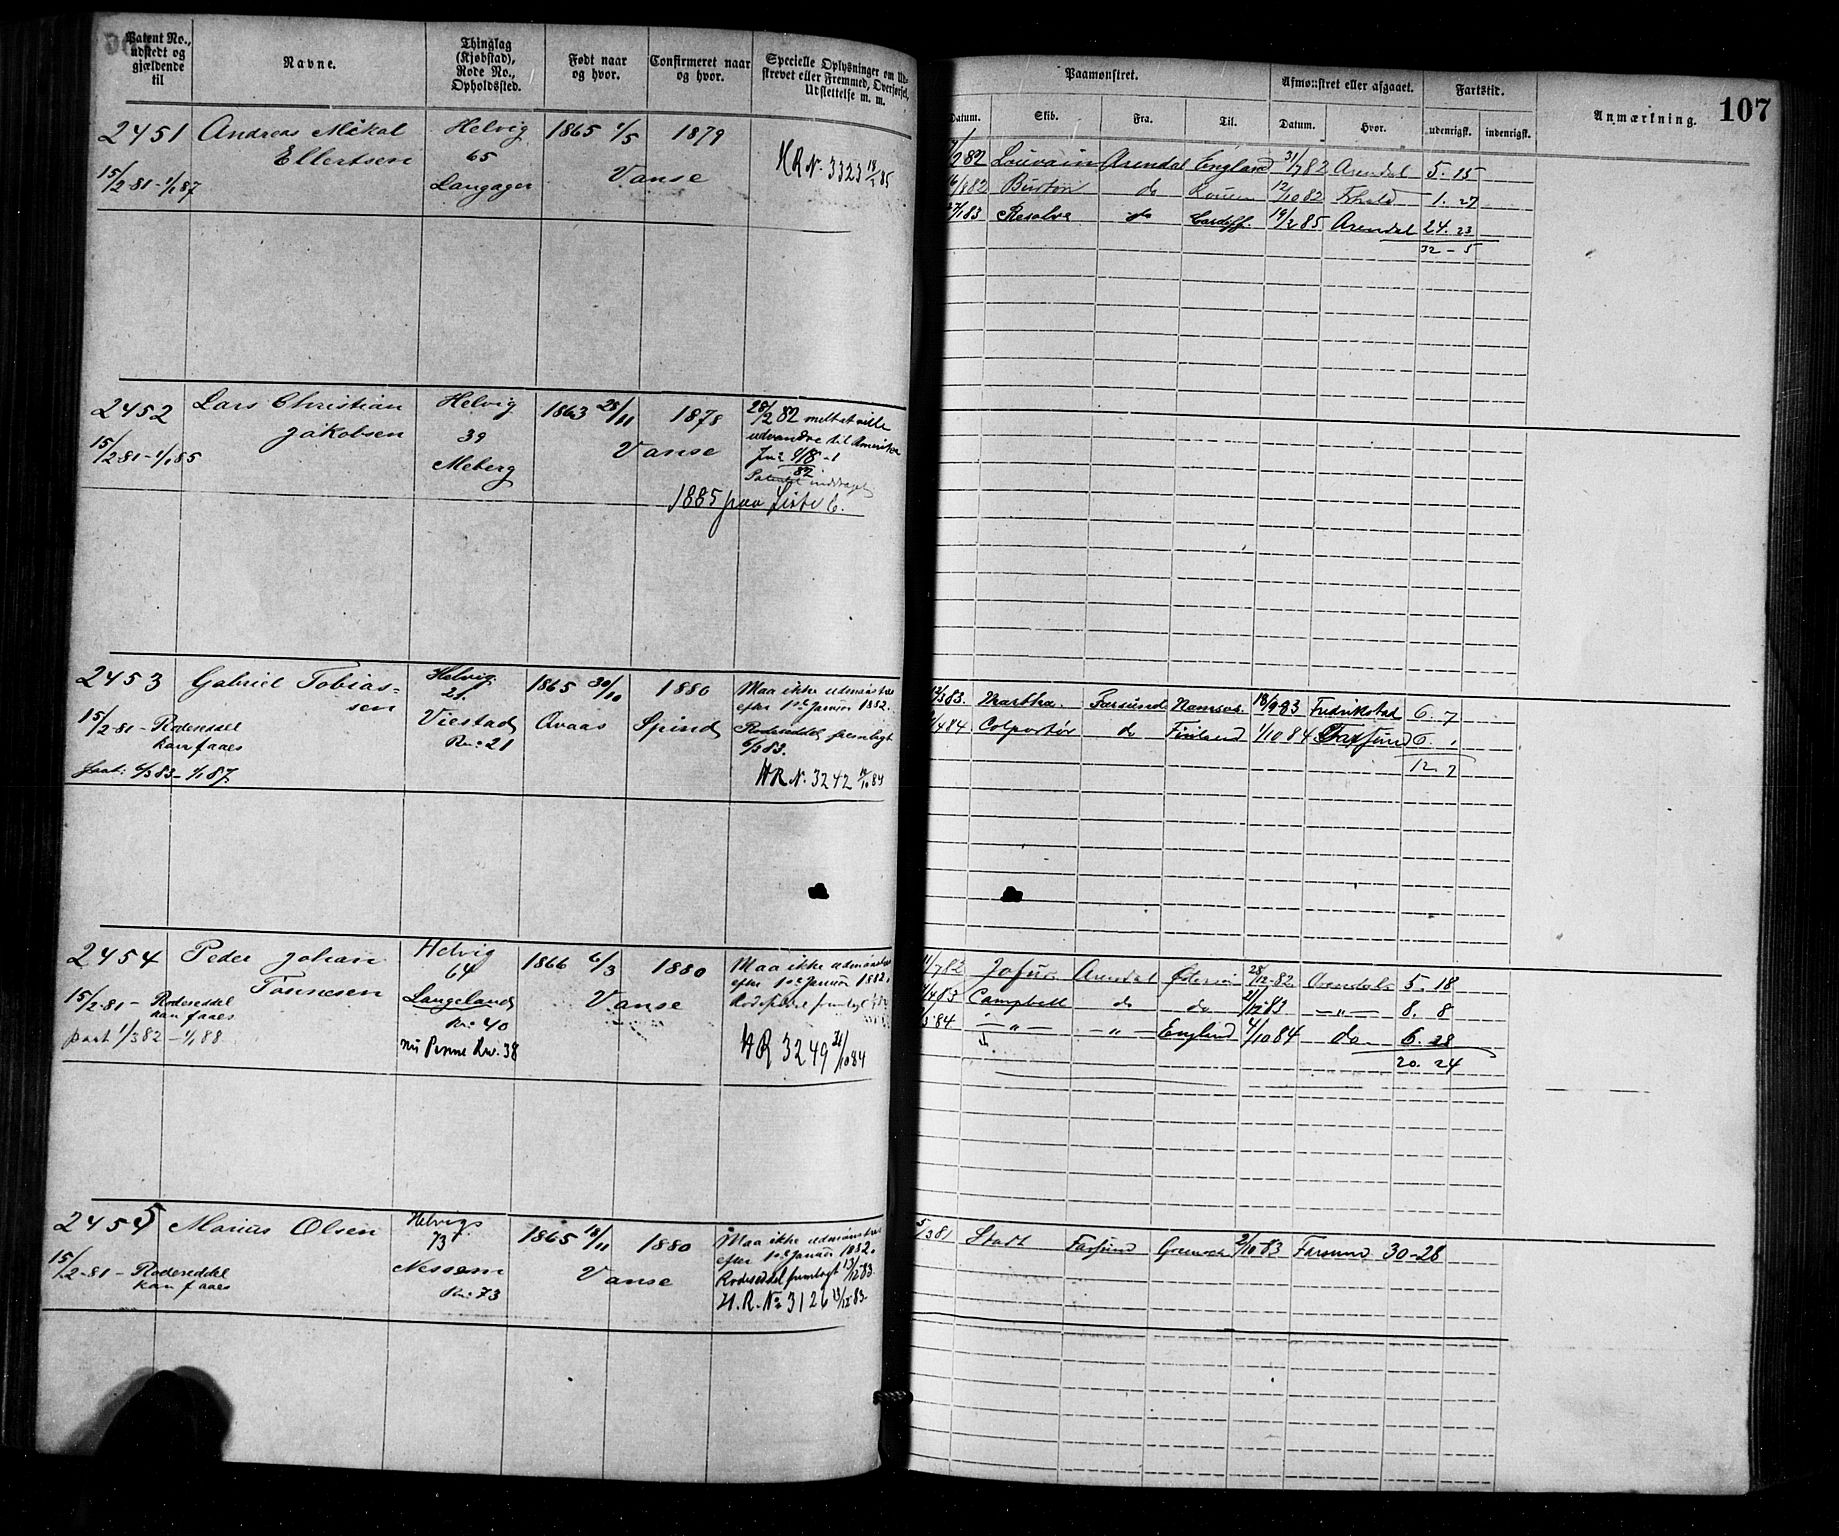 107
Patent No., udstedt og gjældende til
Navne.
Thinglag (Kjøbstad), Rode No., Opholdssted.
Født naar og hvor.
Confirmeret naar og hvor.
Specielle Oplysninger om Ud-
skrevet eller Fremmed, Overførsel,
Udslettelse m. m.
Paamønstret.
Afmønstret eller afgaaet.
Fartstid.
Anmærkning.
Datum. Skib. Fra. Til. Datum. Hvor. udenrigsk. indenrigsk.
2451 Andreas Mikal Helvig 1865 1/5 1879
Ellertsen 65
15/2-81-1/1 87 Langager Vanse HR N. 3323
Arendal England 31/7 82 Arendal 5. 15
do 12/10 82 1. 27
27/1 83 Resolve do Cardiff. 19/2 85 Arendal 24. 23
32 - 5
2452 Lars Christian Helvig 1863 28/11 1878 28/2 82 meldt at ville
Jakobsen 39 udvandre til Amerika
15/2-81-1/1 85 Meberg Vanse
Patentet inddraget
1885 paa Liste C.
2453 Gabriel Tobias= Helvig 1865 30/10 1880 Maa ikke udmønstres
sen 21 efter 1ste Januar 1882.
15/2-81- Rodeseddel Viestad Qvaas Spind Rodeseddel fremlagt
kan faaes Rn: 21 6/3 83.
paat: 6/3 83-1/1 87. HR N. 3242
12/3 83. Martha Farsund Namsos 18/9 83 Fredrikstad 6. 7
4 84 Colportør do Finland 1/10 84 Farsund 6. 1
12. 7
2454 Peder Johan Helvig 1866 6/3 1880 Maa ikke udmønstres
Tønnesen 64 efter 1ste Januar 1882.
15/2-81- Rodeseddel Langeland Vanse
kan faaes Rn: 40
paat 1/3 82-1/1 88 nu Penne Rn. 38 HR 3249 21/10 84
7 82 Arendal 28/12-82 Arendal 5. 18
4 83 Campbell do do 12 83 -"- 8. 8
84 -"- -"- England 4/10 84 do 6. 28
20. 24
2455 Marius Olsen Helvig 1865 18/11 1880 Maa ikke udmønstres
73 efter 1ste Januar 1882.
15/2-81- Rodeseddel Nessem Vanse Rodeseddel fremlagt 13/12 83
kan faaes Rn: 73 H.R. No 3126 13/12 83.
5/3 81 Stadt Farsund 2/10 83 Farsund 30-28